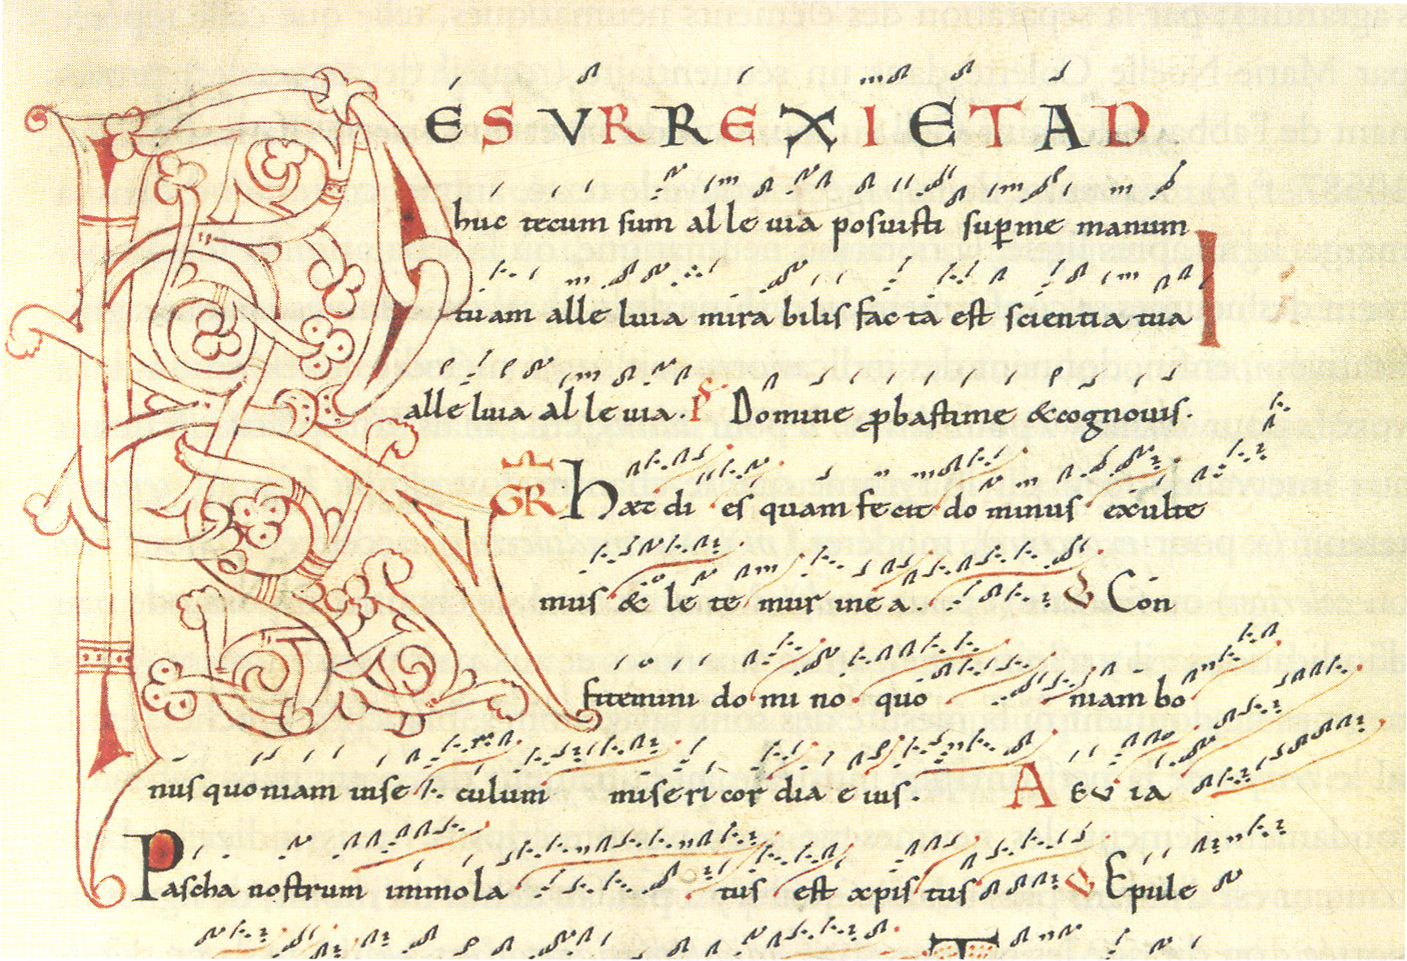 RESURREXI ET AD
huc tecum sum alleluia posuisti sup me manum
tuam alleluia mirabilis facta est scientia tua
alleluia alleluia. Ps Domine pbasti me & cognouis.
GR Haec dies quam fecit dominus exulte
mus & letemur in ea. V Con
fitemini domino quo niam bo
nus quoniam in seculum misericordia eius. AEVIA
Pascha nostrum immola tus est xpistus V Epule